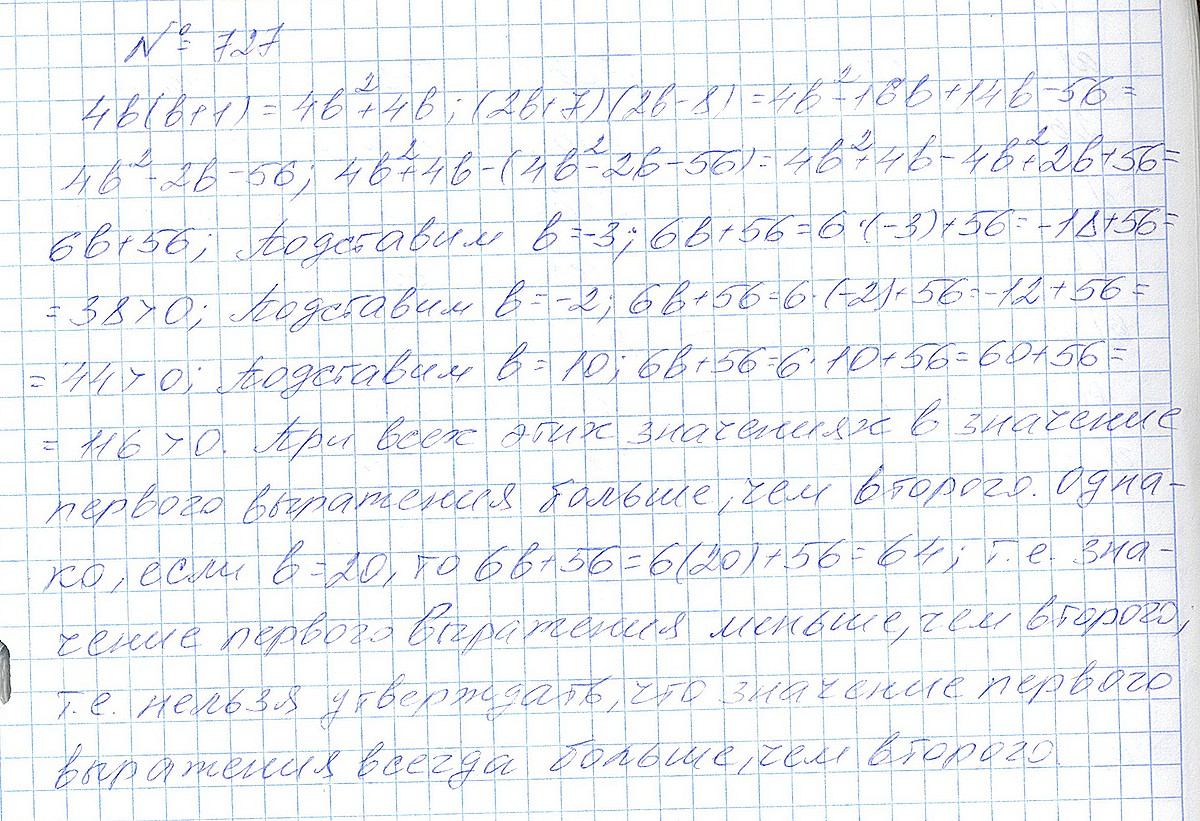 № 727
4b(b+1) = 4b²+4b; (2b+7)(2b-8) = 4b²-16b+14b-56 =
4b²-2b-56; 4b²+4b-(4b²-2b-56) = 4b²+4b-4b²+2b+56 =
6b+56; Подставим b=-3; 6b+56=6·(-3)+56=-18+56=
=38>0; Подставим b=-2; 6b+56=6·(-2)+56=-12+56=
=44>0; Подставим b=10; 6b+56=6·10+56=60+56=
=116>0. При всех этих значениях b значение
первого выражения больше, чем второго. Одна-
ко, если b=20, то 6b+56=6(20)+56=64; т.е. зна-
чение первого выражения меньше, чем второго,
т.е. нельзя утверждать, что значение первого
выражения всегда больше, чем второго.